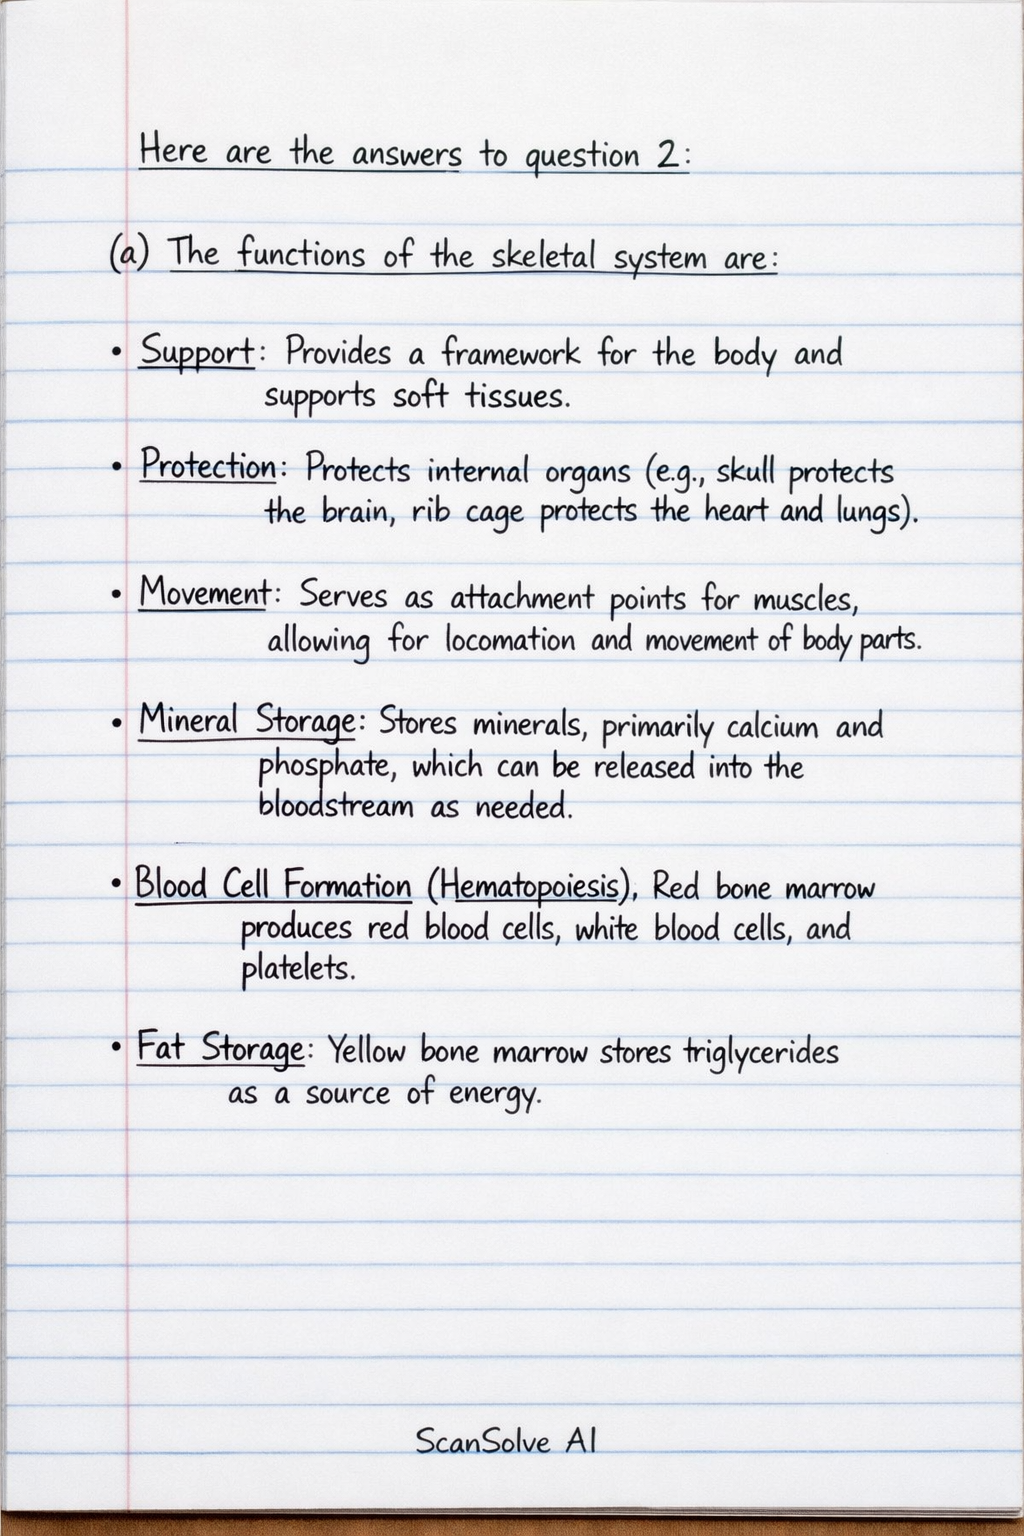 Here are the answers to question 2:
(a) The functions of the skeletal system are:
• Support: Provides a framework for the body and
supports soft tissues.
• Protection: Protects internal organs (e.g., skull protects
the brain, rib cage protects the heart and lungs).
• Movement: Serves as attachment points for muscles,
allowing for locomation and movement of body parts.
• Mineral Storage: Stores minerals, primarily calcium and
phosphate, which can be released into the
bloodstream as needed.
• Blood Cell Formation (Hematopoiesis), Red bone marrow
produces red blood cells, white blood cells, and
platelets.
• Fat Storage: Yellow bone marrow stores triglycerides
as a source of energy.
ScanSolve AI